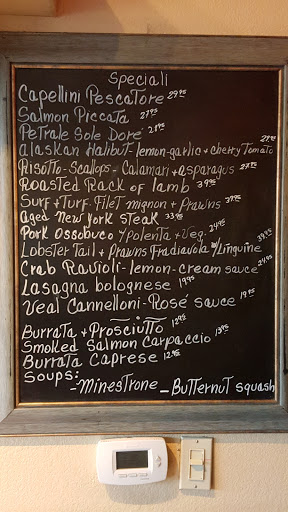 Speciali
Capellini Pescatore 29.95
Salmon Piccata 27.95
Petrale Sole Doré 28.95
Alaskan Halibut - lemon-garlic + cherry Tomato 29.95
Risotto - Scallops - Calamari + asparagus 27.95
Roasted Rack of lamb 39.95
Surf + Turf. Filet mignon + Prawns 39.95
Aged New York Steak 33.95
Pork Ossobuco w/Polenta + Veg. 24.95
Lobster Tail + Prawns Fradiavola w/Linguine 39.95
Crab Ravioli - lemon - cream sauce 24.95
Lasagna bolognese 19.95
Veal Cannelloni - Rosé sauce 19.95
Burrata + Prosciutto 12.95
Smoked Salmon Carpaccio 13.95
Burrata Caprese 12.95
Soups:
- Minestrone - Butternut squash